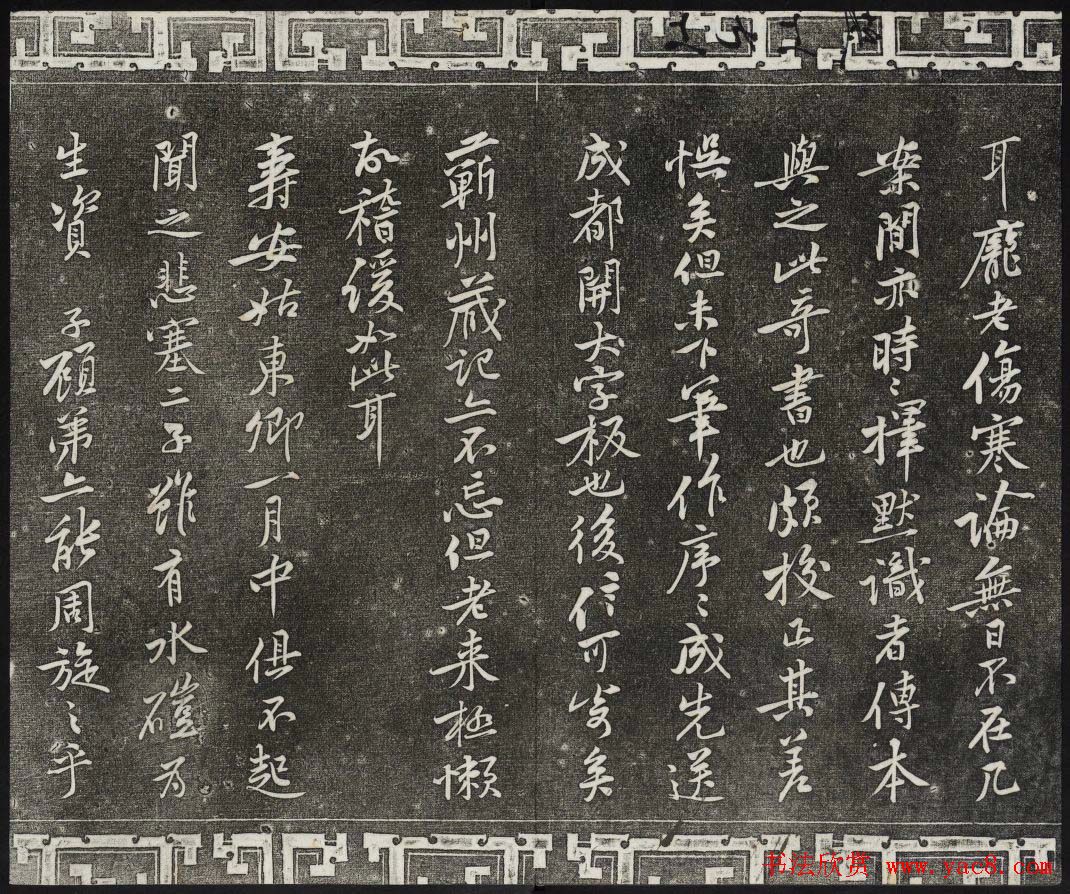 耳龐老傷寒論無日不在几
案間亦時〻擇默識者傳本
與之此奇書也頗校正其差
悞矣但未下筆作序〻成先送
成都開大字板也後信可寄矣
蘄州藏記亦不忘但老來極懶
故稽緩如此耳
壽安姑東卿一月中俱不起
聞之悲塞二子雖有水磑為
生資 子顧弟亦能周旋之乎
书法欣赏 www.yac8.com